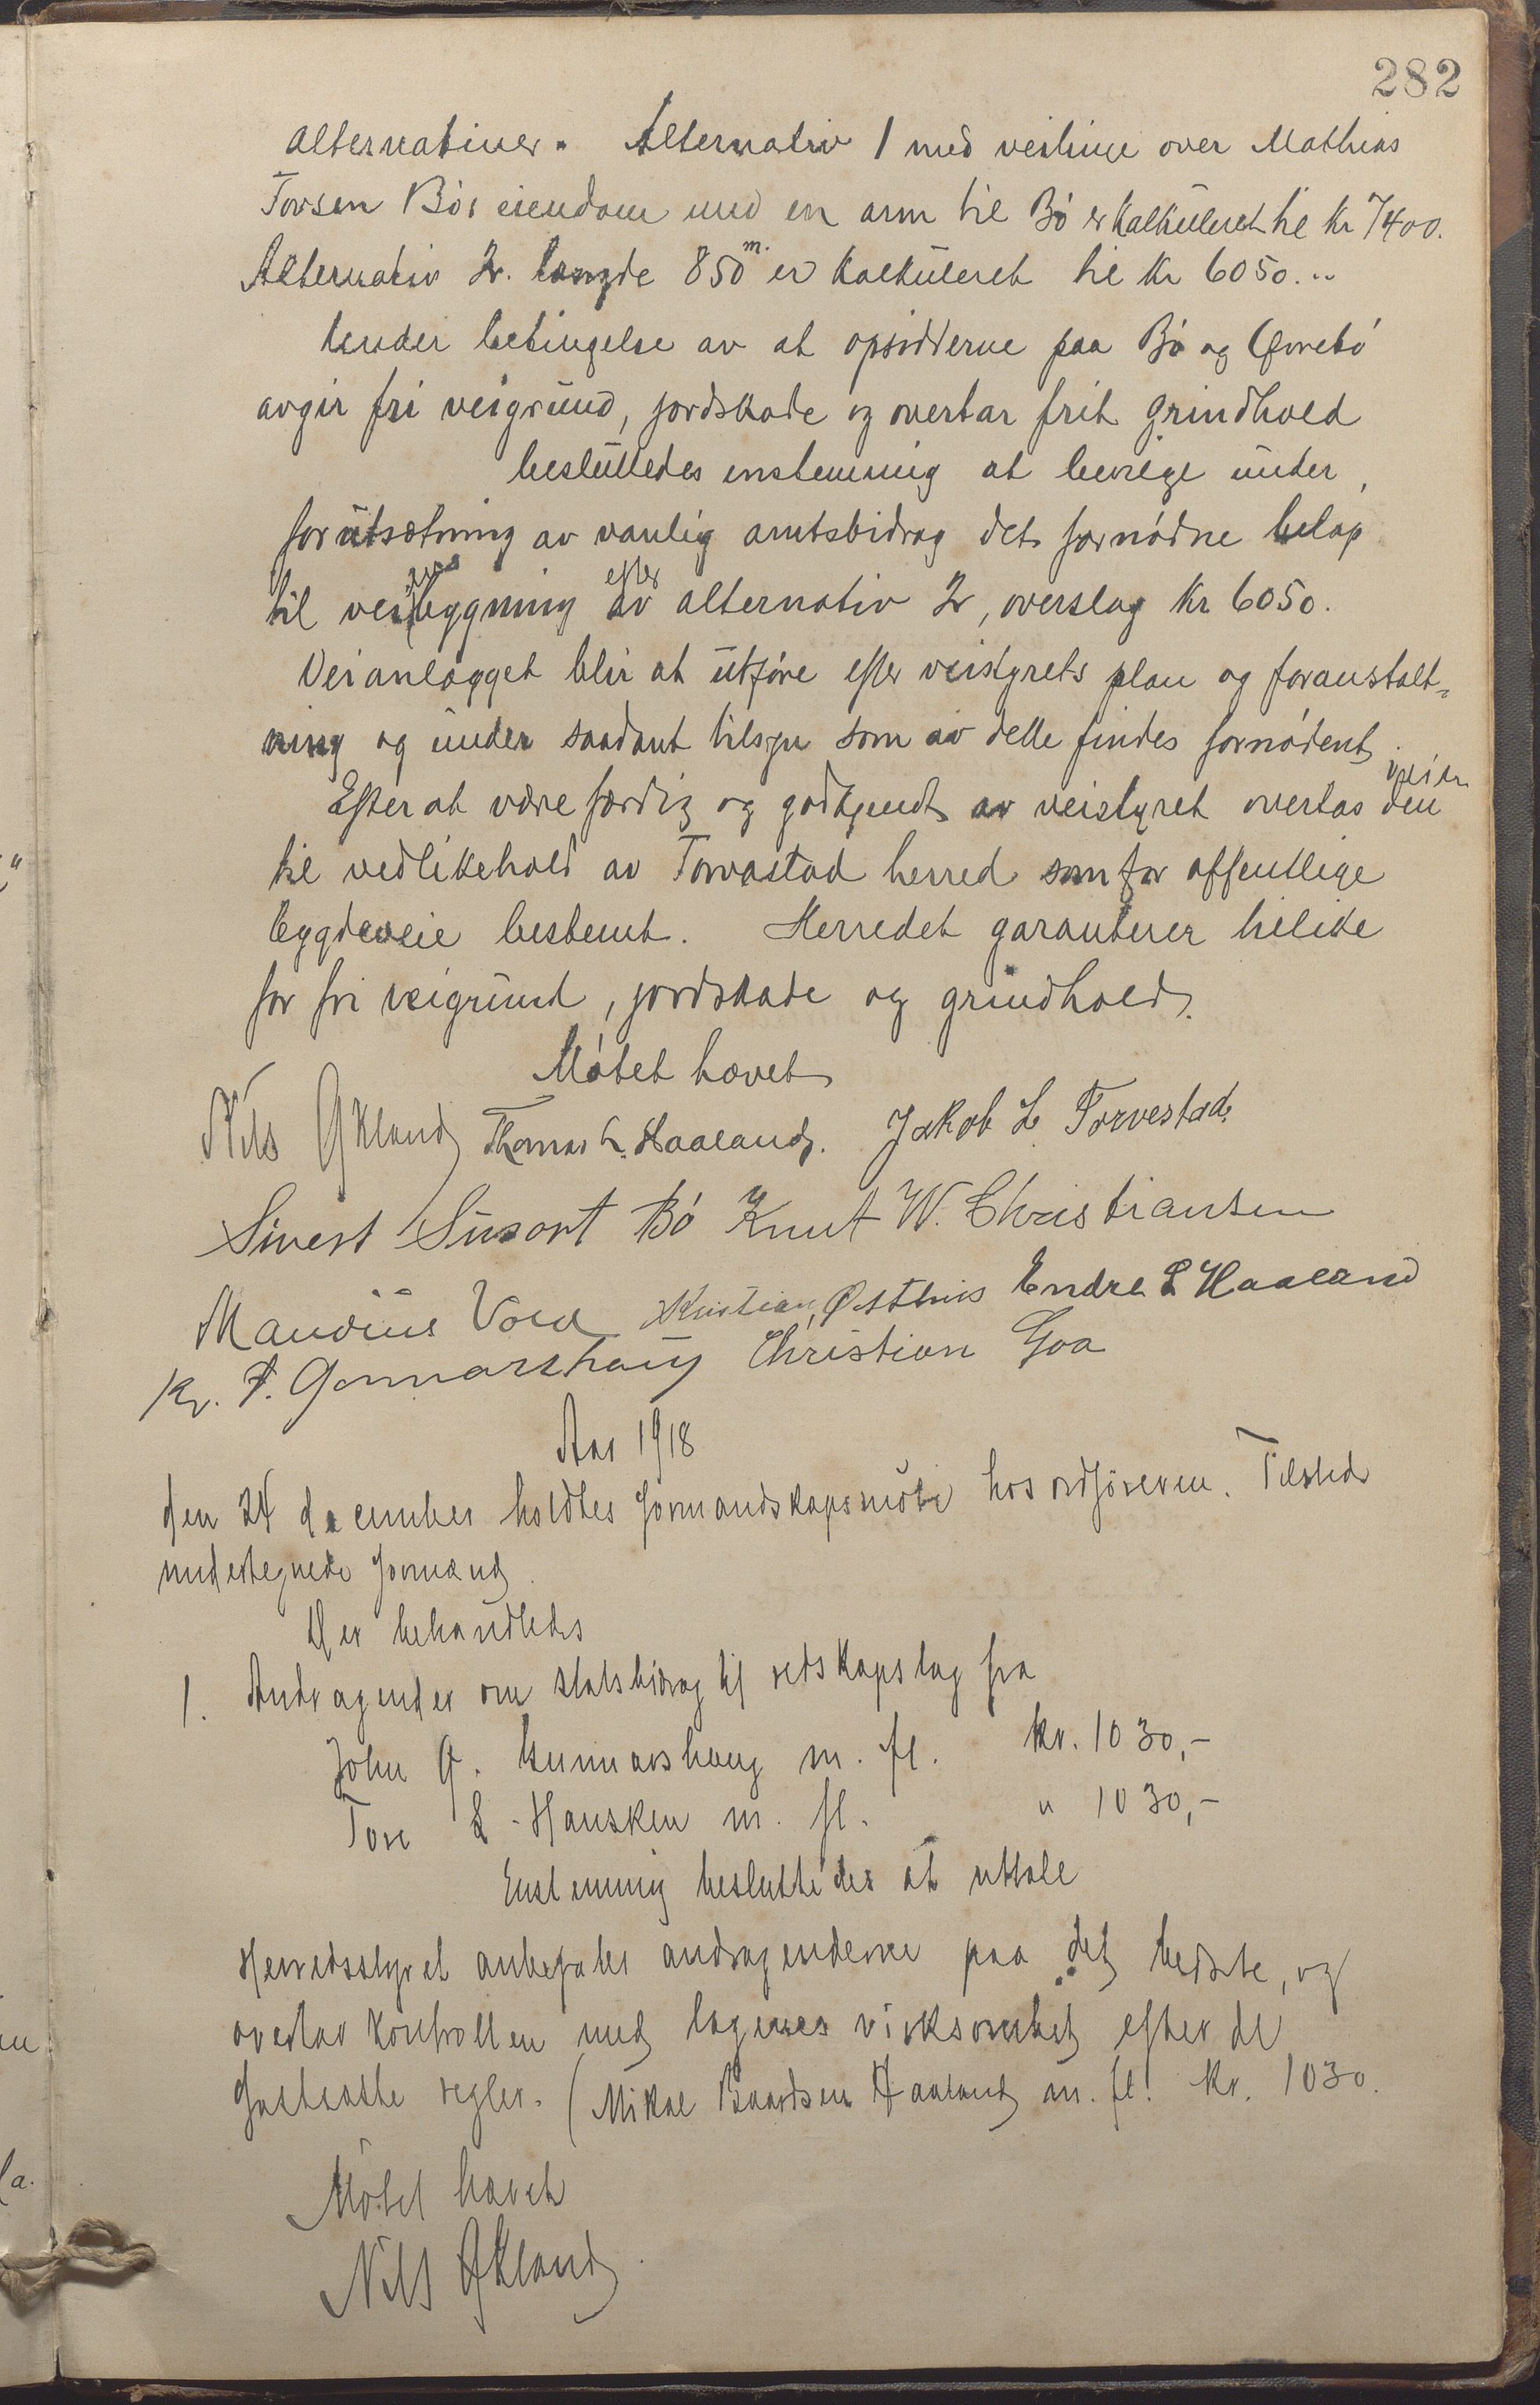 282
alternativer. Alternativ 1 med veilinje over Mathias
Torsen Bös eiendom med en arm til Bö er kalkuleret til kr 7400.
Alternativ 2. længde 850 m. er kalkuleret til kr 6050. "
Under betingelse av at opsidderne paa Bö og Övrebö
avgir fri veigrund, jordskade og overtar frit grindhold
besluttedes enstemmig at bevilge under
forutsætning av vanlig amtsbidrag det fornödne belöp
til veibygning efter av alternativ 2, overslag kr 6050.
Veianlægget blir at utföre efter veistyrets plan og foranstalt-
ning og under saadant tilsyn som av dette findes fornödent.
Efter at være færdig og godkjendt av veistyret overtas den veien
til vedlikehold av Torvastad herred som for offentlige
bygdeveie bestemt. Herredet garanterer tillike
for fri veigrund, jordskade og grindhold.
Mötet hævet
Nils Ökland Thomas L. Haaland. Jakob L. Torvestad.
Sivert Sivert Bö Knut W. Christiansen
Mandius Vold Kristian Östhus Endre L Haaland
Kr. F. Gonnarshaug Christian Goa
Aar 1918
den 24 december holdtes formandskapsmöte hos ordföreren. Tilstede
undertegnede formænd.
Der behandledes
1. Andragender om statsbidrag til redskapslag fra
John G. Gunnarshaug m. fl. kr. 1030,-
Tore L. Hausken m. fl. " 1030,-
Enstemmig besluttedes at uttale
Herredsstyret anbefaler andragenderne paa det bedste, og
overtar kontrollen med lagenes virksomhet efter de
fastsatte regler. (Mikal Baardsen Haaland m. fl. kr. 1030.
Mötet hævet
Nils Ökland.